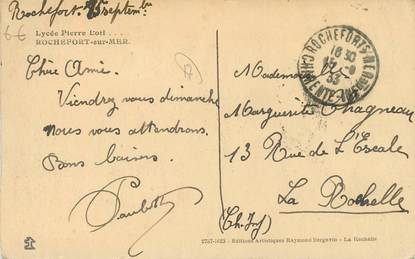 Rochefort. 15 septembre
66
Lycée Pierre Loti ....
ROCHEFORT-sur-MER.
Chère Amie.
Viendrez vous dimanche
Nous vous attendrons.
Bons baisers.
Paulette
ROCHEFORT S/MER
CHARENTE-INF
16 30
Mademoiselle
Marguerite Chagneau
13 Rue de L'Escale
La Rochelle
(Ch. Inf)
2757-1623 - Editions Artistiques Raymond Bergevin - La Rochelle